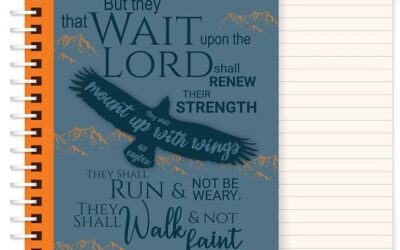 But they
that WAIT upon the
LORD shall
RENEW
THEIR
STRENGTH
They shall
mount up with wings
as
eagles;
THEY SHALL
RUN & NOT BE
WEARY;
THEY
SHALL Walk & NOT
faint